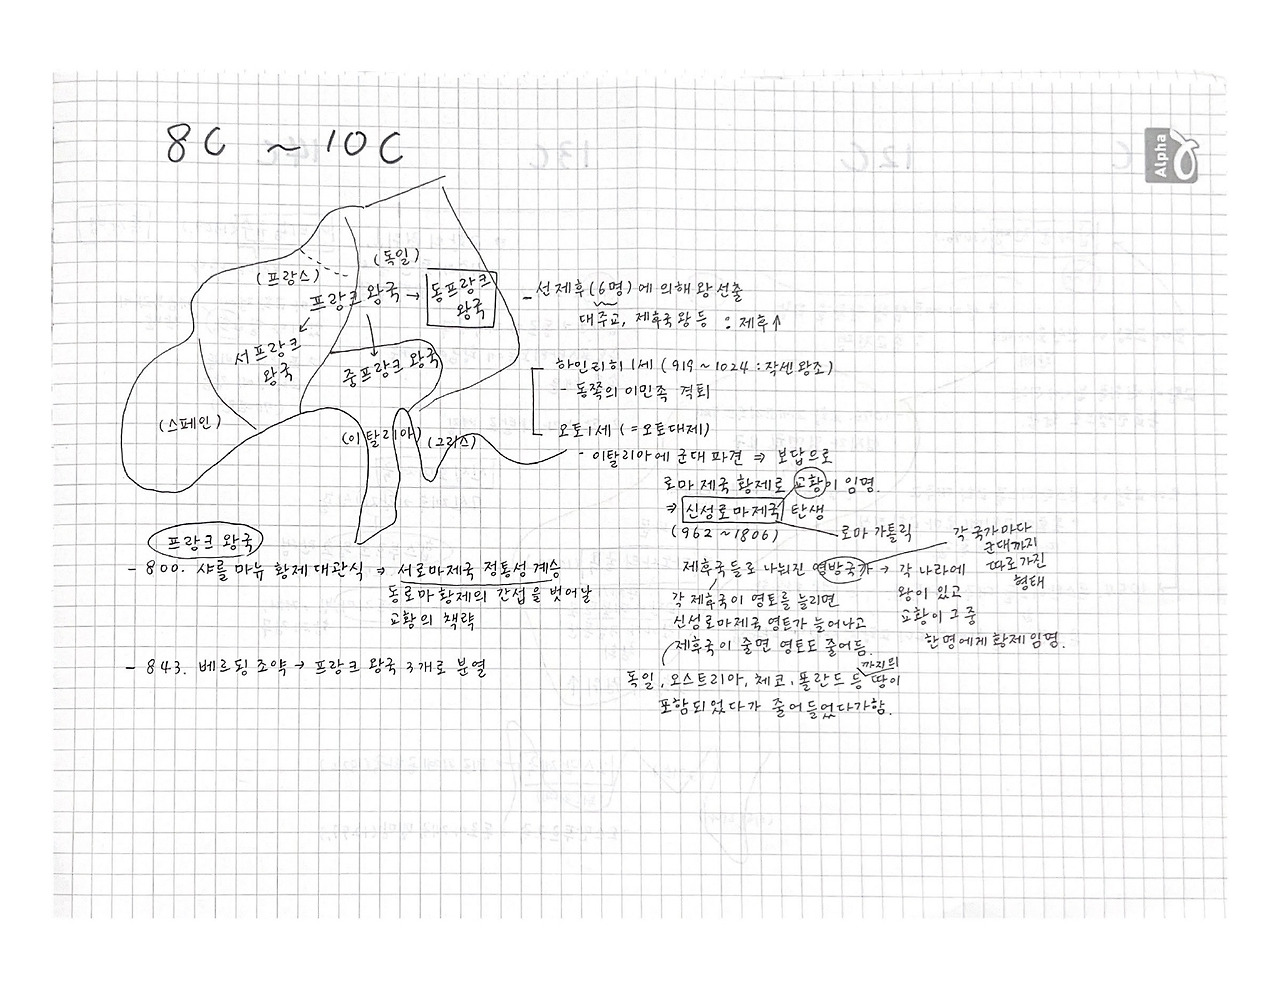 8C ~ 10C
Alpha
(독일)
(프랑스)
프랑크 왕국 → 동프랑크
왕국
서프랑크
왕국
중프랑크 왕국
(스페인)
(이탈리아)
(그리스)
- 선제후(6명)에 의해 왕 선출
대주교, 제후국 왕 등 : 제후↑
하인리히 1세 (919 ~ 1024 : 작센 왕조)
- 동쪽의 이민족 격퇴
오토1세 (=오토대제)
- 이탈리아에 군대 파견 ⇒ 보답으로
로마 제국 황제로 교황이 임명.
⇒ 신성로마제국 탄생
(962 ~ 1806)
로마 가톨릭
제후국들로 나눠진 연방국가 → 각 나라에
왕이 있고
교황이 그 중
한명에게 황제 임명.
각 국가마다
군대까지
따로 가진
형태
각 제후국이 영토를 늘리면
신성로마제국 영토가 늘어나고
제후국이 줄면 영토도 줄어듬.
독일, 오스트리아, 체코, 폴란드 등 까지의 땅이
포함되었다가 줄어들었다가함.
프랑크 왕국
- 800. 샤를 마뉴 황제 대관식 ⇒ 서로마제국 정통성 계승
동로마 황제의 간섭을 벗어날
교황의 책략
- 843. 베르됭 조약 → 프랑크 왕국 3개로 분열